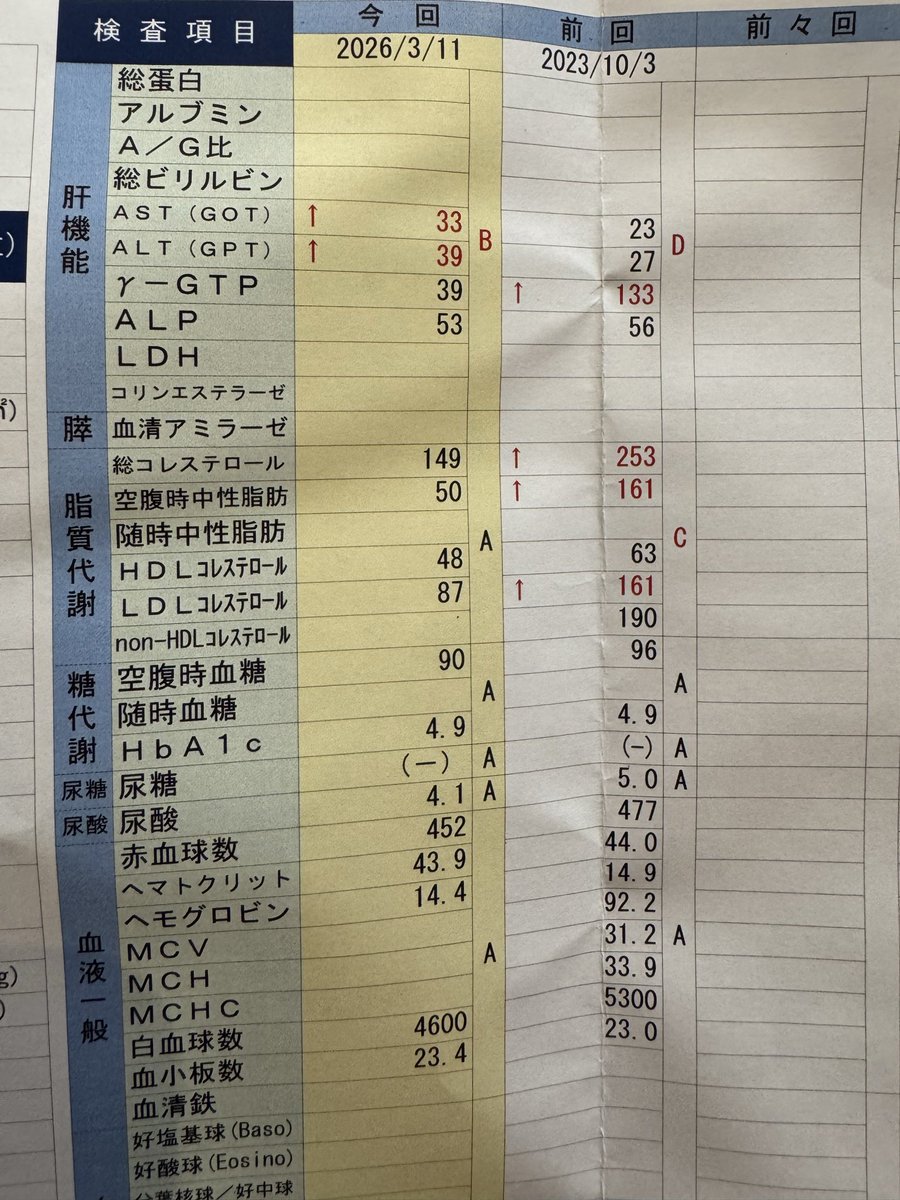 検査項目 今回 前回 前々回
2026/3/11 2023/10/3
肝機能
総蛋白
アルブミン
A/G比
総ビリルビン
AST(GOT) ↑ 33 B 23 D
ALT(GPT) ↑ 39 27
γ-GTP 39 ↑ 133
ALP 53 56
LDH
コリンエステラーゼ
膵 血清アミラーゼ
脂質代謝
総コレステロール 149 ↑ 253
空腹時中性脂肪 50 ↑ 161
随時中性脂肪 A C
HDLコレステロール 48 63
LDLコレステロール 87 ↑ 161
non-HDLコレステロール 190
糖代謝
空腹時血糖 90 A 96 A
随時血糖
HbA1c 4.9 4.9
尿糖 尿糖 (-) A (-) A
尿酸 尿酸 4.1 A 5.0 A
血液一般
赤血球数 452 477
ヘマトクリット 43.9 44.0
ヘモグロビン 14.4 14.9
MCV 92.2
MCH A 31.2 A
MCHC 33.9
白血球数 4600 5300
血小板数 23.4 23.0
血清鉄
好塩基球(Baso)
好酸球(Eosino)
分葉核球/好中球